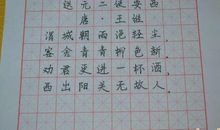 送元二使安西
唐·王维
渭城朝雨浥轻尘，
客舍青青柳色新。
劝君更进一杯酒，
西出阳关无故人。